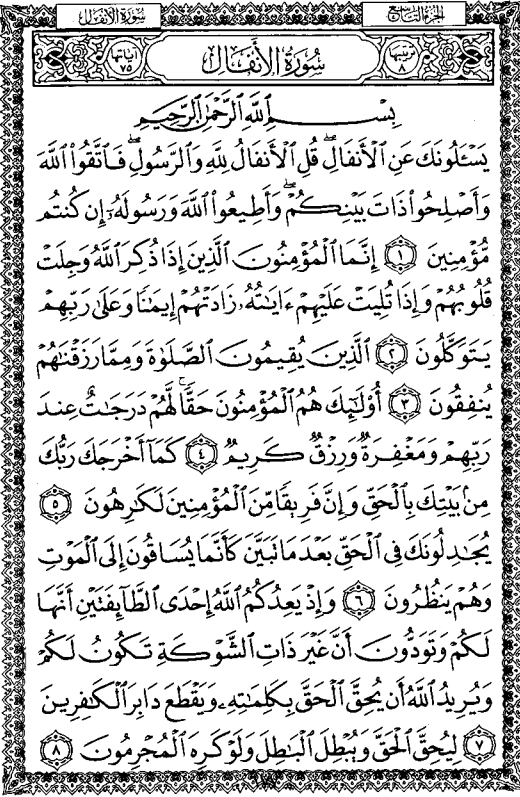 سُورَةُ الأَنفَال
الجزء التاسع
ترتيبها ٨
سُورَةُ الأَنفَالِ
آياتها ٧٥
بِسْمِ ٱللَّهِ ٱلرَّحْمَٰنِ ٱلرَّحِيمِ
يَسْـَٔلُونَكَ عَنِ ٱلْأَنفَالِۖ قُلِ ٱلْأَنفَالُ لِلَّهِ وَٱلرَّسُولِۖ فَٱتَّقُوا۟ ٱللَّهَ
وَأَصْلِحُوا۟ ذَاتَ بَيْنِكُمْۖ وَأَطِيعُوا۟ ٱللَّهَ وَرَسُولَهُۥٓ إِن كُنتُم
مُّؤْمِنِينَ ١ إِنَّمَا ٱلْمُؤْمِنُونَ ٱلَّذِينَ إِذَا ذُكِرَ ٱللَّهُ وَجِلَتْ
قُلُوبُهُمْ وَإِذَا تُلِيَتْ عَلَيْهِمْ ءَايَٰتُهُۥ زَادَتْهُمْ إِيمَٰنًا وَعَلَىٰ رَبِّهِمْ
يَتَوَكَّلُونَ ٢ ٱلَّذِينَ يُقِيمُونَ ٱلصَّلَوٰةَ وَمِمَّا رَزَقْنَٰهُمْ
يُنفِقُونَ ٣ أُو۟لَٰٓئِكَ هُمُ ٱلْمُؤْمِنُونَ حَقًّاۚ لَّهُمْ دَرَجَٰتٌ عِندَ
رَبِّهِمْ وَمَغْفِرَةٌ وَرِزْقٌ كَرِيمٌ ٤ كَمَآ أَخْرَجَكَ رَبُّكَ
مِنۢ بَيْتِكَ بِٱلْحَقِّ وَإِنَّ فَرِيقًا مِّنَ ٱلْمُؤْمِنِينَ لَكَٰرِهُونَ ٥
يُجَٰدِلُونَكَ فِى ٱلْحَقِّ بَعْدَ مَا تَبَيَّنَ كَأَنَّمَا يُسَاقُونَ إِلَى ٱلْمَوْتِ
وَهُمْ يَنظُرُونَ ٦ وَإِذْ يَعِدُكُمُ ٱللَّهُ إِحْدَى ٱلطَّآئِفَتَيْنِ أَنَّهَا
لَكُمْ وَتَوَدُّونَ أَنَّ غَيْرَ ذَاتِ ٱلشَّوْكَةِ تَكُونُ لَكُمْ
وَيُرِيدُ ٱللَّهُ أَن يُحِقَّ ٱلْحَقَّ بِكَلِمَٰتِهِۦ وَيَقْطَعَ دَابِرَ ٱلْكَٰفِرِينَ
٧ لِيُحِقَّ ٱلْحَقَّ وَيُبْطِلَ ٱلْبَٰطِلَ وَلَوْ كَرِهَ ٱلْمُجْرِمُونَ ٨